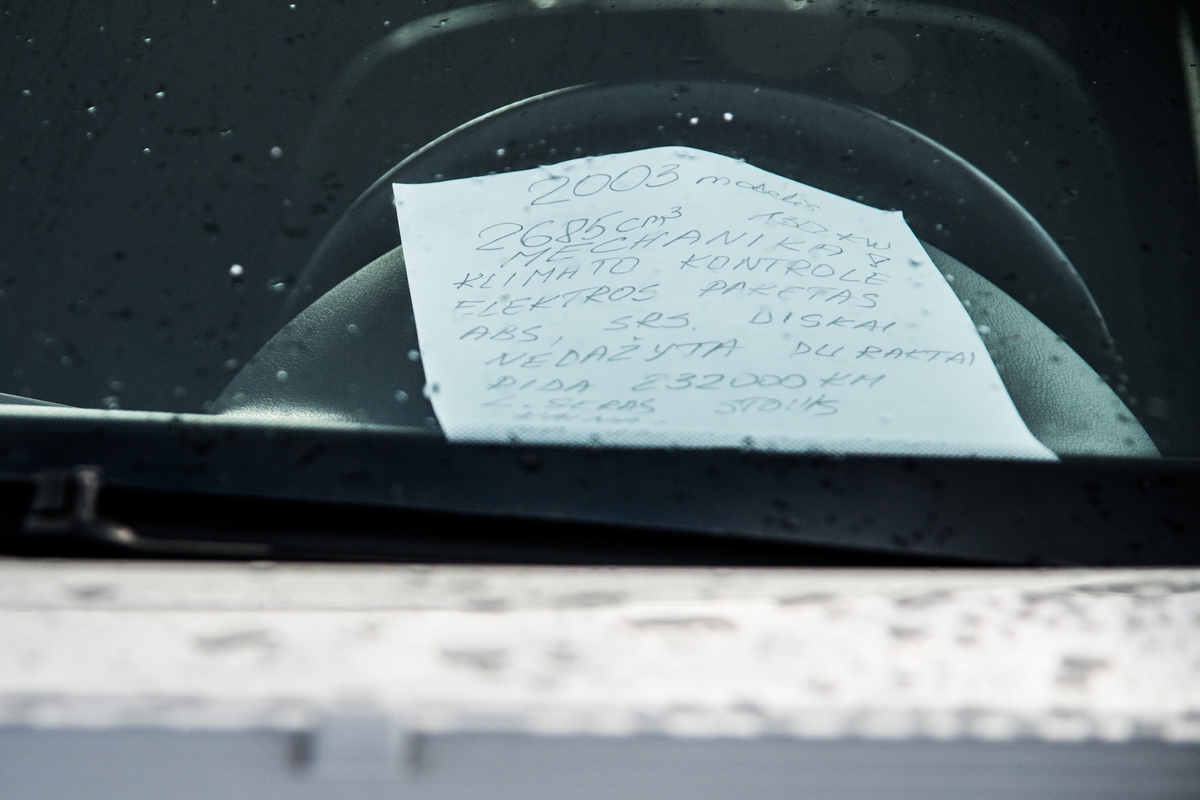 2003 modelis
2685 cm³ 130 KW
MECHANIKA
KLIMATO KONTROLE
ELEKTROS PAKETAS
ABS, SRS. DISKAI
NEDAŽYTA DU RAKTAI
RIDA 232000 KM